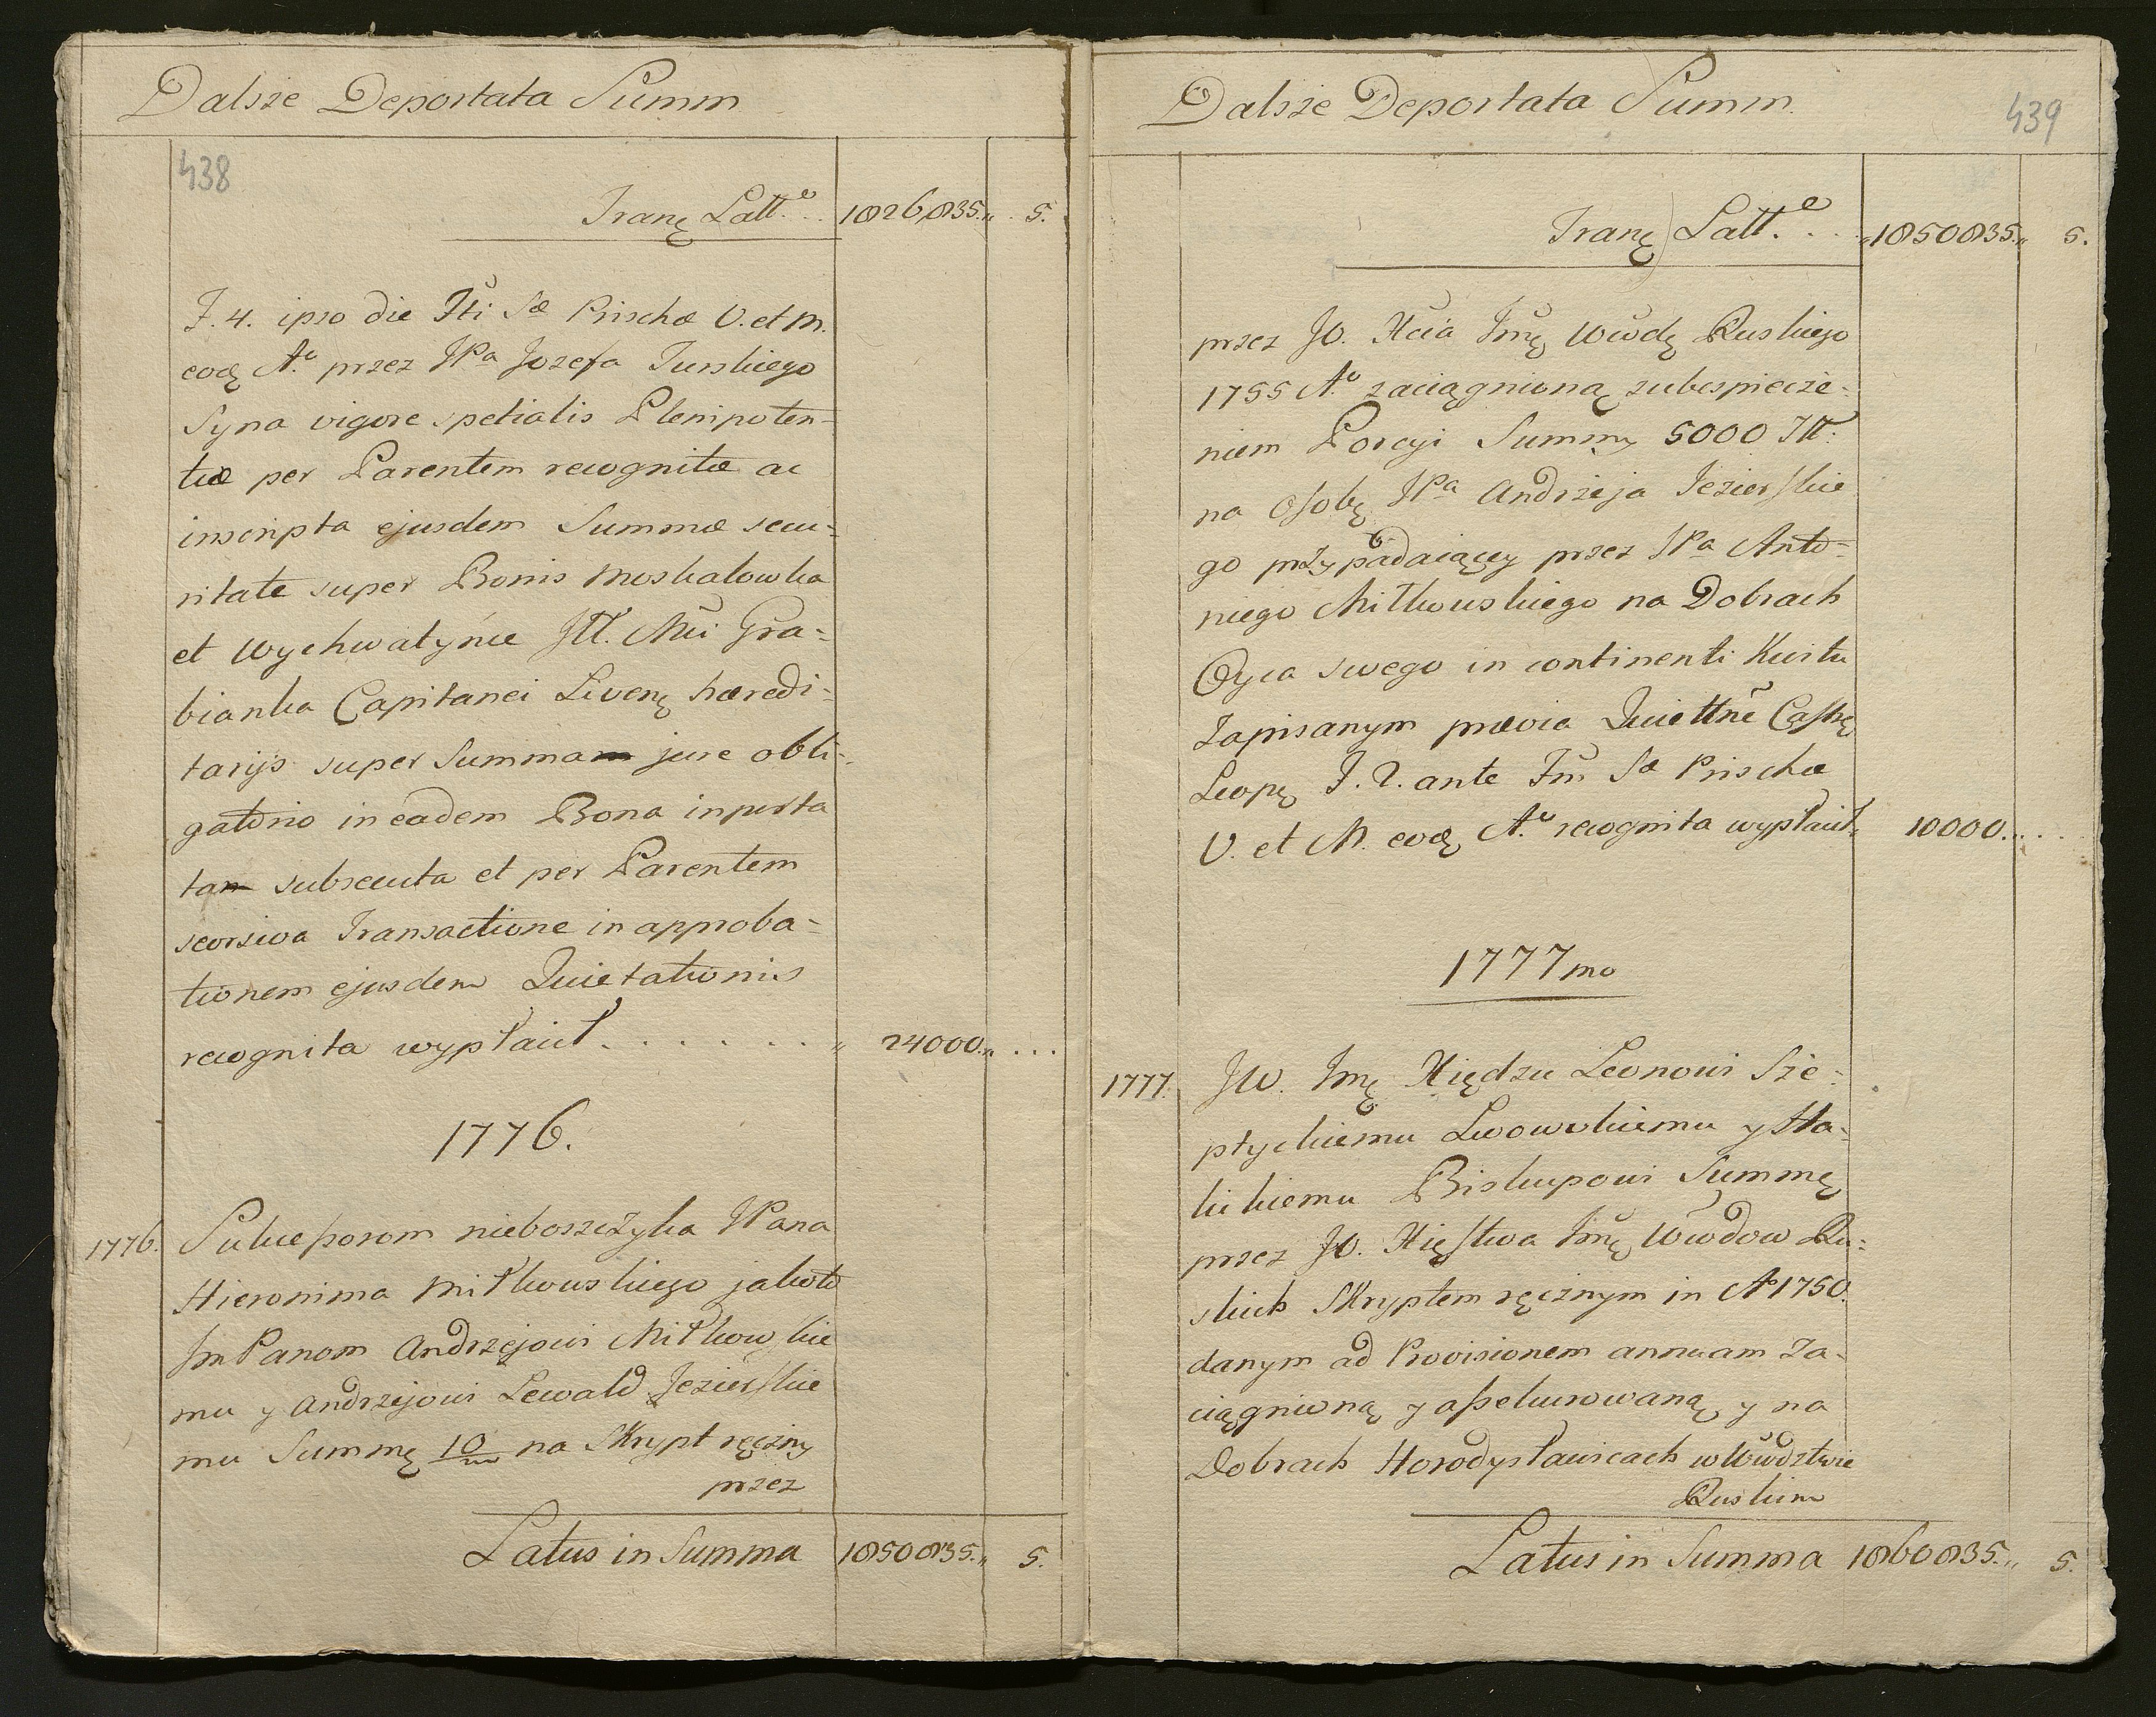 Dalsze Deportata Summ
438
Tranę Latt.e .. 1826835.,, 5.
F. 4. ipso die Fti Sæ Prischæ V. et M.
eodę Ao przez JPa Jozefa Turskiego
Syna vigore spetialis Plenipoten=
tiæ per Parentem recognitæ ac
inscripta ejusdem Summæ secu=
ritate super Bonis Moskalowka
et Wychwatynce Jll. Mci Gra=
bianka Capitanei Livenę hæredi=
tarijs super Summam jure obli=
gatorio in eadem Bona inpor̃ta
tam subsecuta et per Parentem
seorsiva Transactione in approba=
tionem ejusdem Quietationis
recognita wypłacił . . . . . . . ,, 24000.,, ...
1776.
1776. Sukcessorom nieboszczyka JPana
Hieronima Miłkowskiego jakoto
Jm Panom Andrzejowi Miłkowskie
mu y Andrzejowi Lewald Jezierskie
mu Summę 10/m na Skrypt ręczny
przez
Latus in Summa 1850835.,, 5.
Dalsze Deportata Summ.
439
Tranę Latt.e . . . ,,1850835.,, 5.
przez JO. Xcia Jmę Wwdę Ruskiego
1755 Ao zaciągnioną zubespiecze=
niem Porcyi Summy 5000 Złł:
na Osobę JPa Andrzeja Jezierskie
go przypadaiącey przez JPa Anto=
niego Miłkowskiego na Dobrach
Oyca swego in continenti Kwitu
Zapisanym prævia Quiettne Castrę
Leopę F. 2. ante Fm Sæ Prischæ
V. et M. eodę Ao recognita wypłacił,, 10000....
1777mo
1777. JW. Jmę Xiędzu Leonowi Sze=
ptyckiemu Lwowskiemu y Ha=
lickiemu Biskupowi Summę
przez JO. Xięstwa Jmę Wwdow Ru=
skich Skryptem ręcznym in Ao 1750.
danym ad Provisionem annuam Za=
ciągnioną y assekurowaną y na
Dobrach Horodysławicach w Wwdztwie
Ruskim
Latus in Summa 1860835.,, 5.